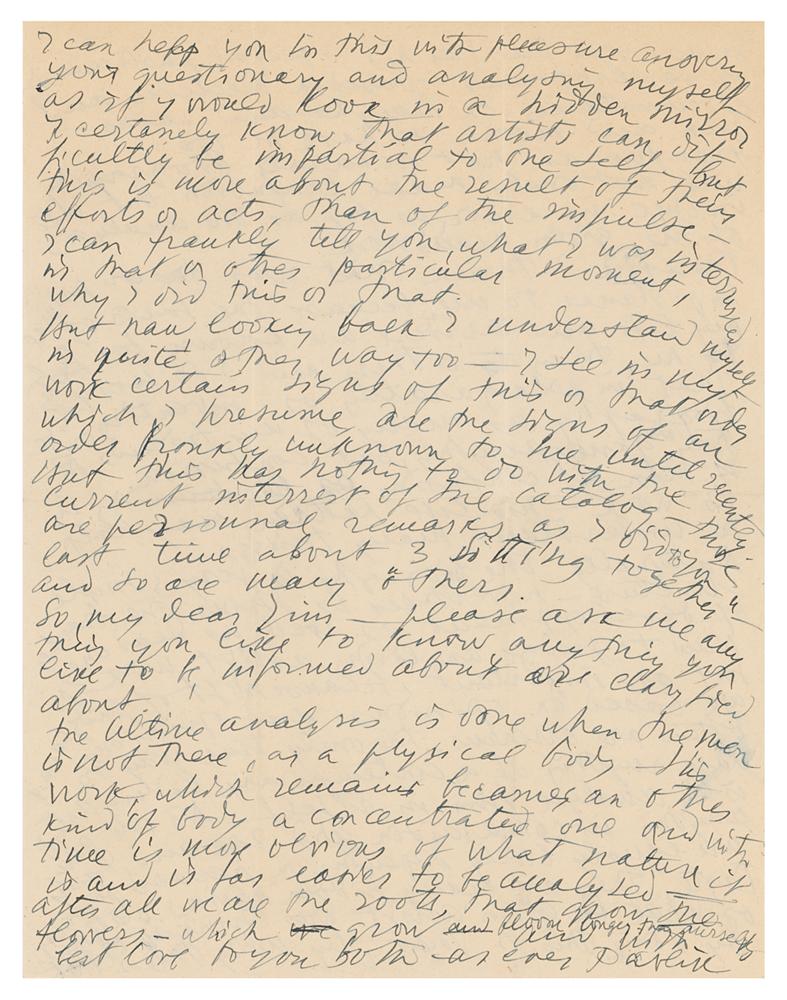 I can help you in this with pleasure answering
your questionary and analysing myself
as if I would look in a hidden mirror
I certanely know that artists can dif
ficultly be impartial to one self - but
this is more about the result of their
efforts or acts, than of the impulse -
I can frankly tell you what I was interrested
in that or other particular moment,
why I did this or that.
But now looking back I understand myself
in quite other way too - I see in my
work certain signs of this or that order
which, I presume, are the signs of an
order frankly unknown to me until recently -
But this has nothing to do with the
current interrest of the catalog - those
are personnal remarks as I did to you
last time about 3 sitting together" -
and so are many others.
So, my dear Jim - please ask me any
thing you like to know anything you
like to be informed about or clarified
about.
The ultime analysis is done when the man
is not there, as a physical body - his
work, which remains becomes an other
kind of body a concentrated one and with
time is more obvious of what nature it
is and is far easier to be analysed -
after all we are the roots, that grow the
flowers - which grow and bloom longer than ourselfs
and with
best love to you both - as ever Pavlik